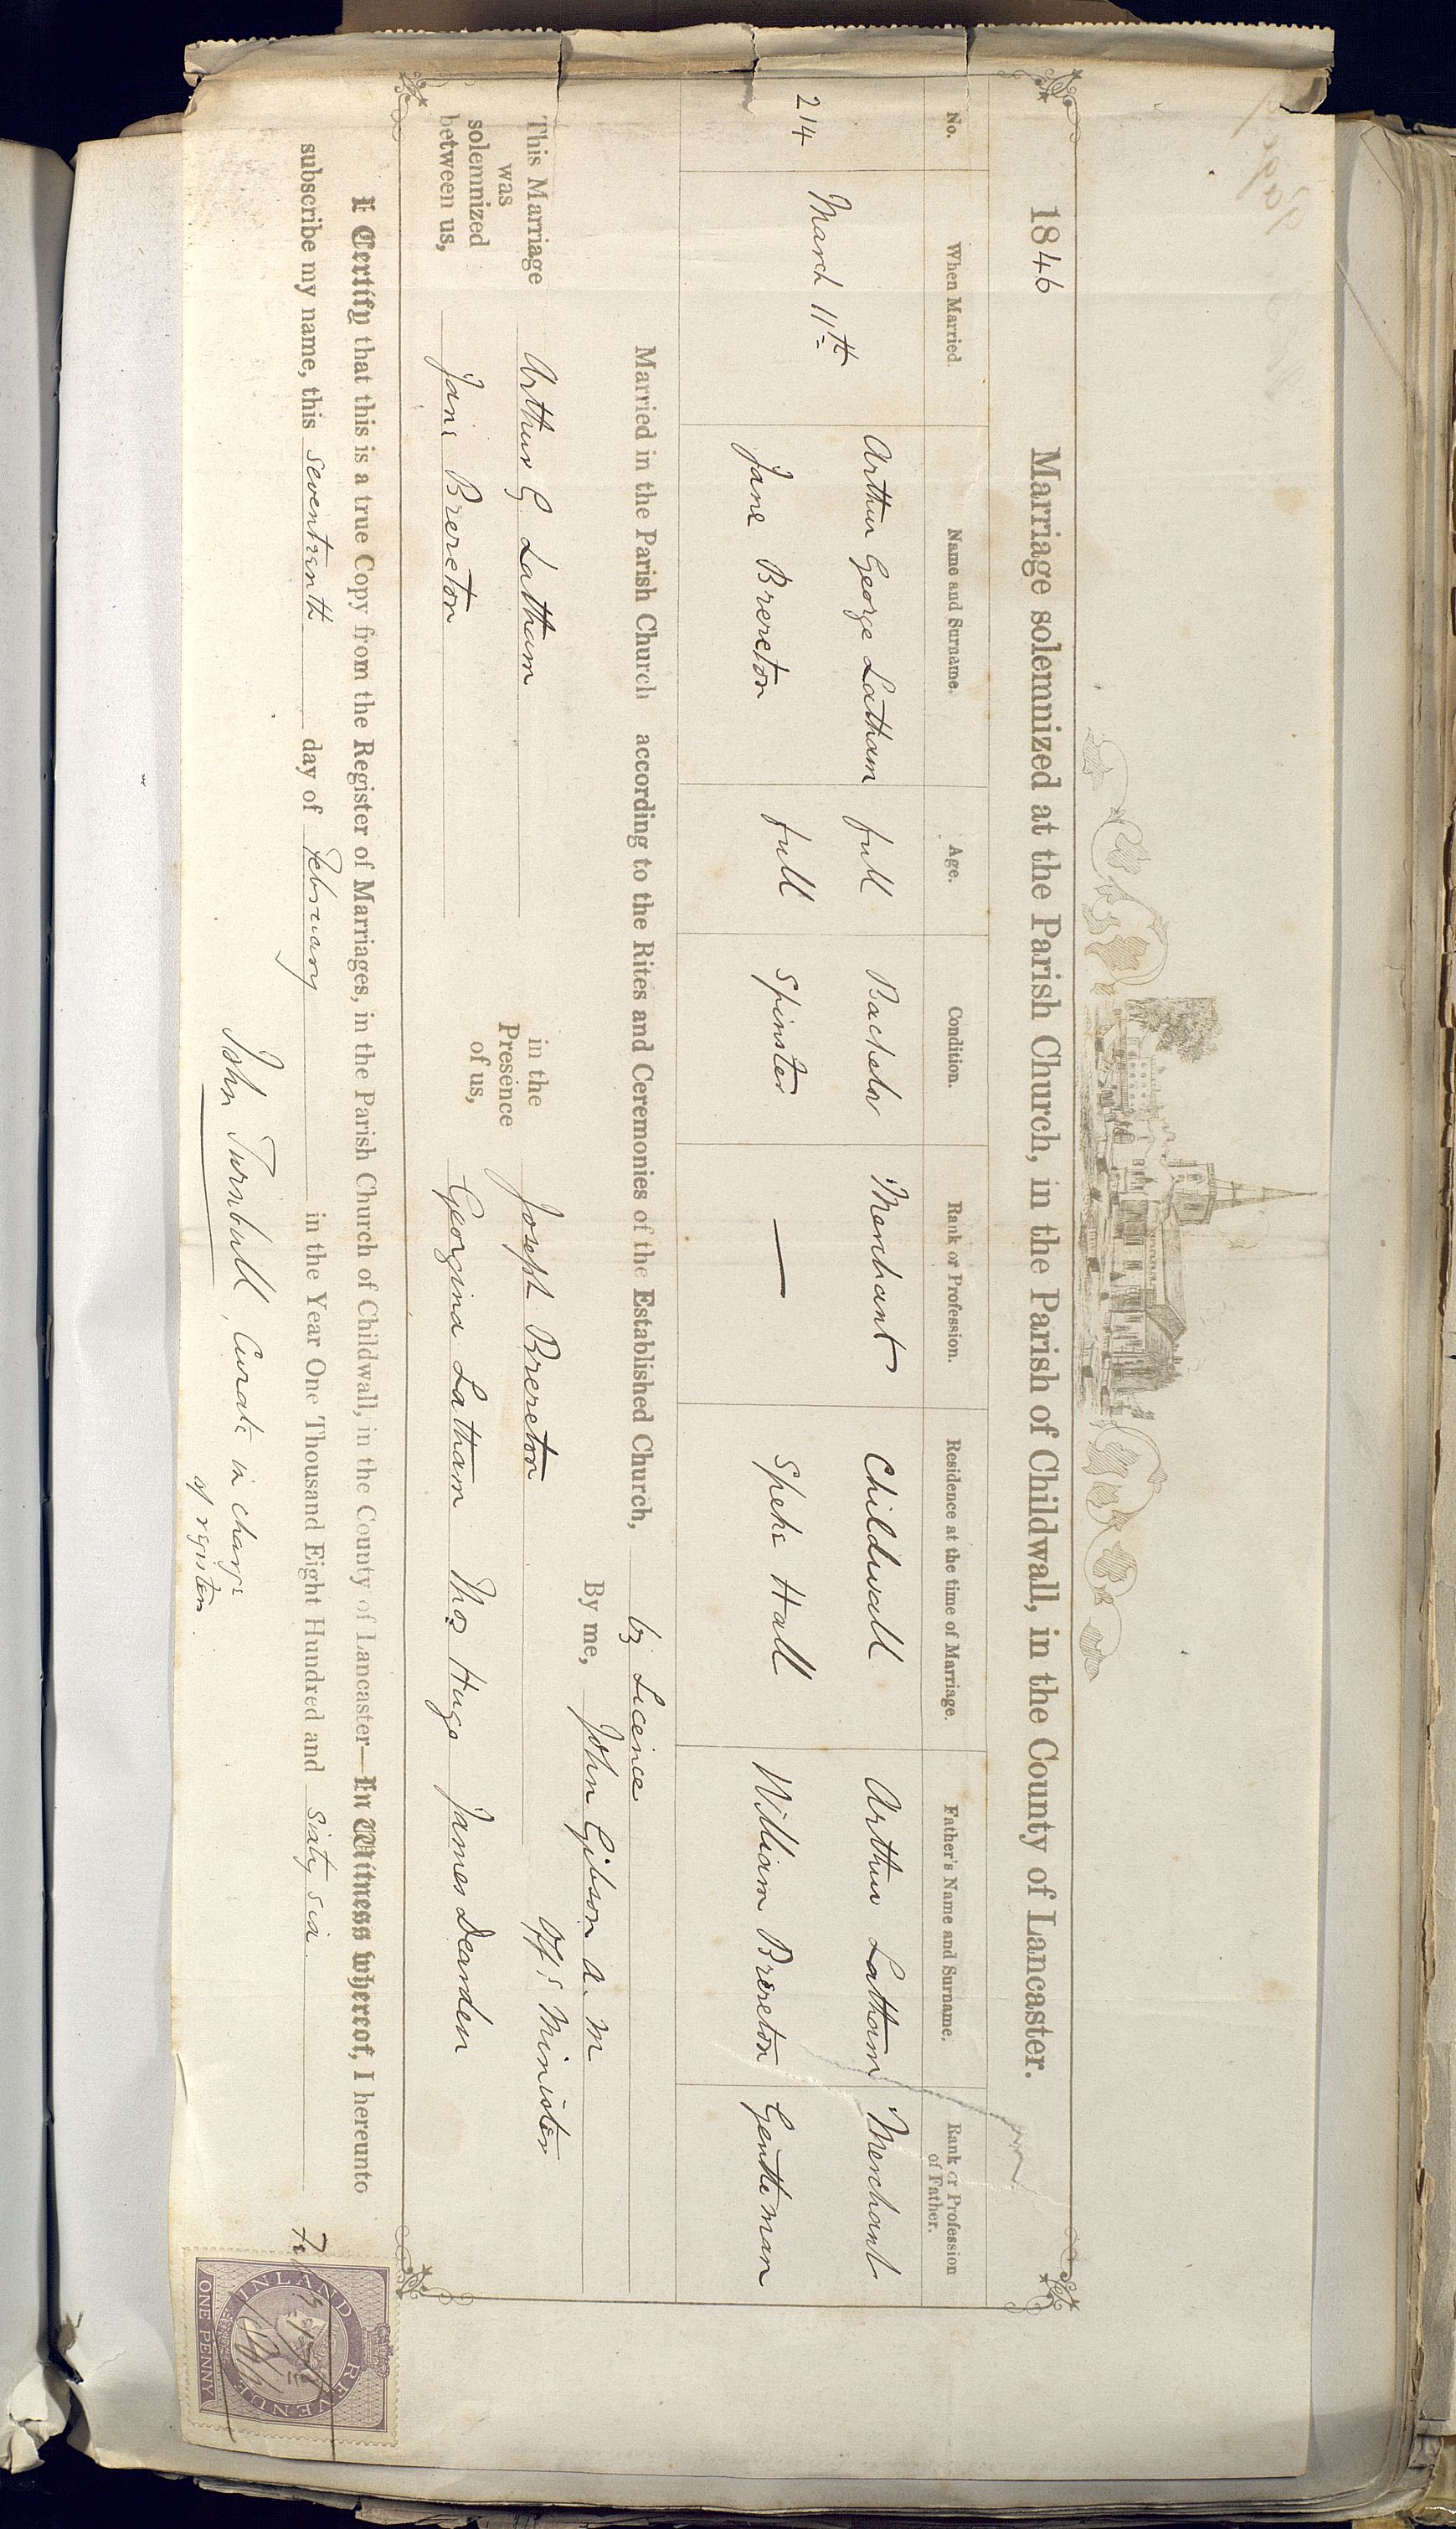 1846 Marriage solemnized at the Parish Church, in the Parish of Childwall, in the County of Lancaster.
No. When Married. Name and Surname. Age. Condition. Rank or Profession. Residence at the time of Marriage. Father's Name and Surname. Rank or Profession of Father.
Arthur George Latham full Bachelor Merchant Childwall Arthur Latham Merchant
214 March 11th
Jane Brereton full Spinster — Speke Hall William Brereton Gentleman
Married in the Parish Church according to the Rites and Ceremonies of the Established Church, by Licence
By me, John Gibson A. M
This Marriage was solemnized between us,
Arthur G Latham
Jane Brereton
in the Presence of us,
Joseph Brereton
Georgina Latham Thos Hugo James Dearden
Offs Minister
I Certify that this is a true Copy from the Register of Marriages, in the Parish Church of Childwall, in the County of Lancaster—In Witness whereof, I hereunto
subscribe my name, this seventeenth day of February in the Year One Thousand Eight Hundred and sixty six.
John Turnbull, Curate in charge
of register.
INLAND REVENUE
ONE PENNY